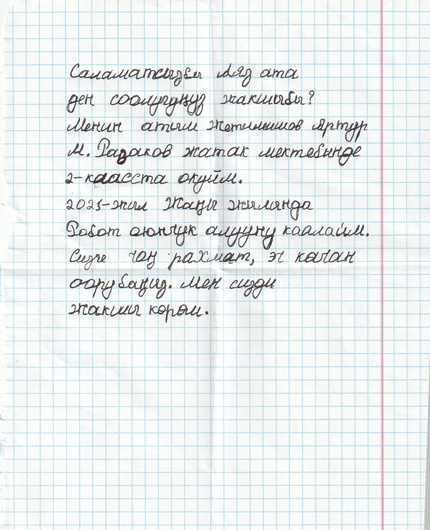 Саламатсызбы Аяз ата
ден соолугунуз жакшыбы?
Менин атым Жетимишов Артур
М. Разаков жатак мектебинде
2-клаасста окуйм.
2025-жыл Жаңы жылында
Робот оюнчук алууну каалайм.
Сизге чоң рахмат, эч качан
оорубаңыз. Мен сизди
жакшы көрөм.